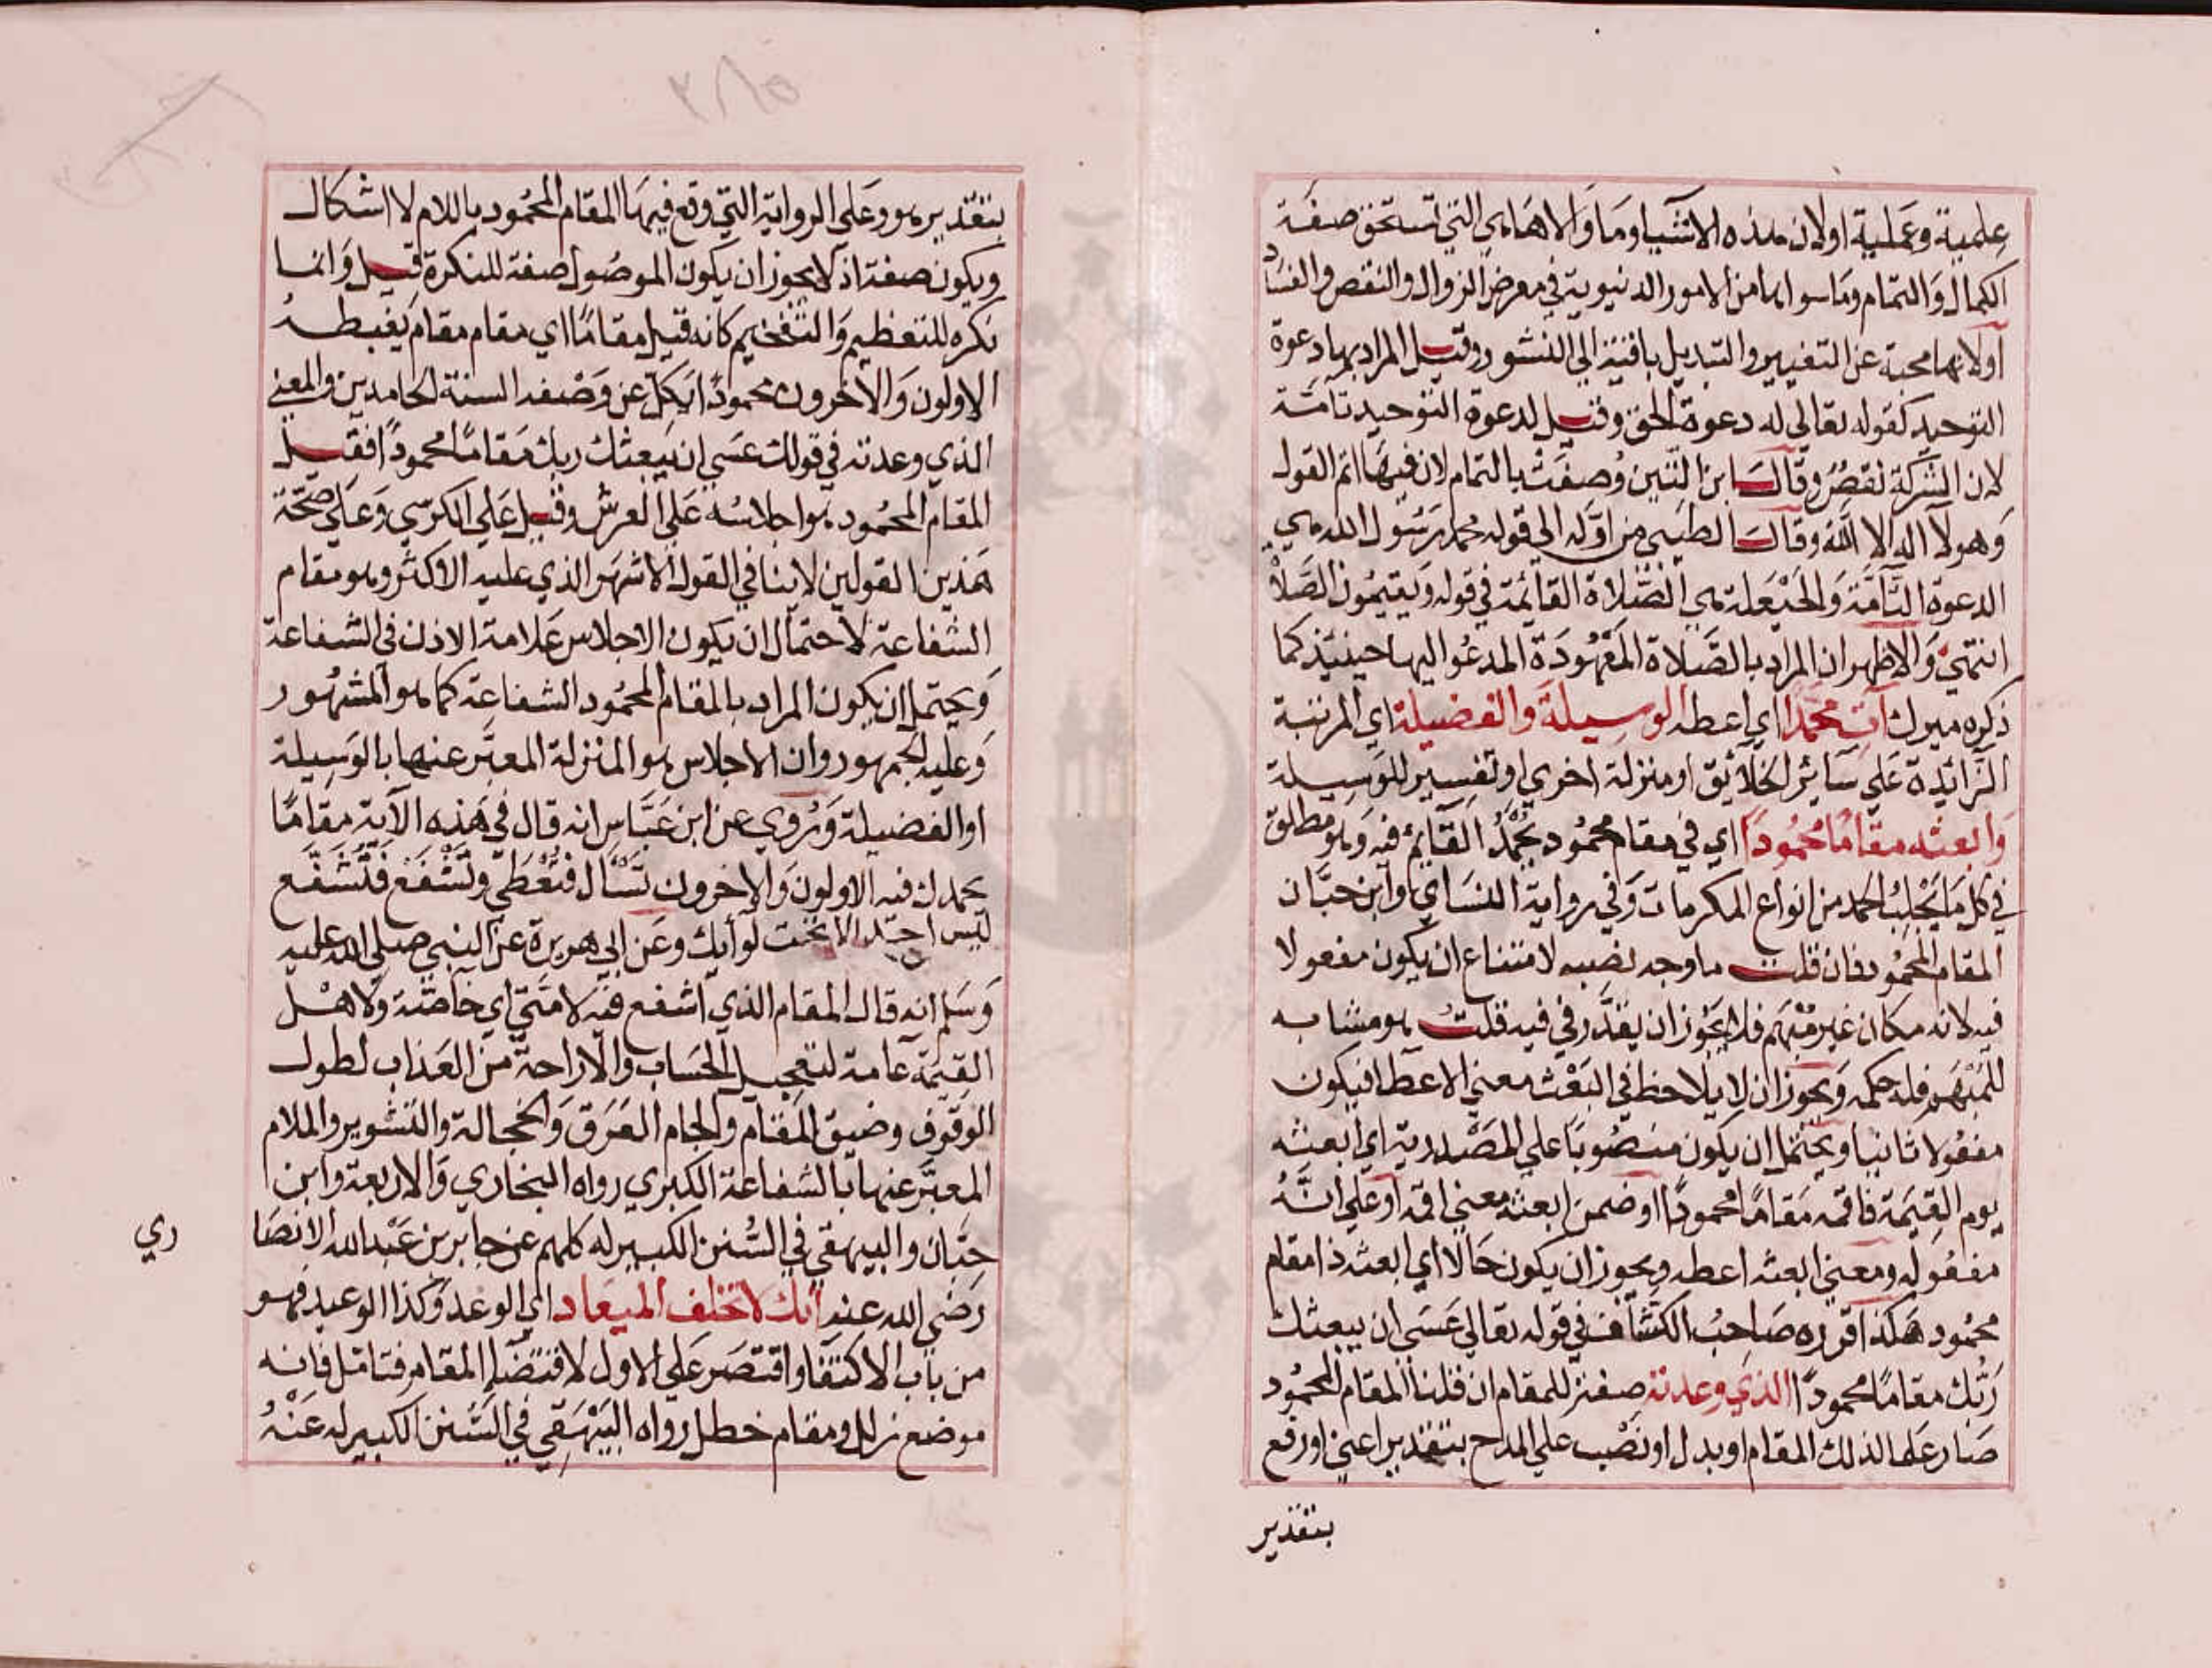 علمية وعملية اولان هذه الاشيا وما والاها هي التي تستحق صفة
الكمال والتمام وما سواها من الامور الدنيوية في معرض الزوال والنقص والفساد
اولانها محمية عن التغيير والتبديل باقية الي النشور وقيل المراد بها دعوة
التوحيد كقوله تعالي له دعوة الحق وقيل لدعوة التوحيد تامة
لان الشركة نقص وقال ابن التين وصفت بالتمام لان فيها اتم القول
وهو لا اله الا الله وقال الطيبي من اوله الي قوله محمد رسول الله هي
الدعوة التامة والحيعلة هي الصلاة القائمة في قوله ويقيمون الصلاة
انتهي والاظهر ان المراد بالصلاة المعهودة المدعو اليها حينيذ كما
ذكره ميرك آت محمدا اي اعطه الوسيلة والفضيلة اي المرتبة
الزائدة علي سائر الخلائق او منزلة اخري او تفسير للوسيلة
وابعثه مقاما محمودا اي في مقام محمود يحمد القائم فيه وهو مطلق
في كل ما يجلب الحمد من انواع المكرمات وفي رواية النساي وابن حبان
المقام المحمود فان قلت ما وجه نصبه لامتناع ان يكون مفعولا
فيه لانه مكان غير مبهم فلا يجوز ان يقدر في فيه قلت هو مشابه
للمبهم فله حكمه ويجوز ان يلاحظ في البعث معني الاعطا فيكون
مفعولا ثانيا ويحتمل ان يكون منصوبا علي المصدرية اي ابعثه
يوم القيمة فاقمه مقاما محمودا او ضمن ابعثه معني اقمه او علي انه
مفعوله ومعني ابعثه اعطه ويجوز ان يكون حالا اي ابعثه ذا مقام
محمود هكذا قرره صاحب الكشاف في قوله تعالي عسي ان يبعثك
ربك مقاما محمودا الذي وعدته صفة للمقام ان قلنا المقام المحمود
صار علما لذلك المقام او بدل او نصب علي المدح بتقدير اعني او رفع
بتقدير
بتقدير هو وعلي الرواية التي وقع فيها المقام المحمود باللام لا اشكال
ويكون صفة اذ لا يجوز ان يكون الموصول صفة للنكرة قيل وانما
نكره للتعظيم والتفخيم كانه قيل مقاما اي مقام مقام يغبطه
الاولون والاخرون محمودا يكل عن وصفه السنة الحامدين والمعني
الذي وعدته في قولك عسي ان يبعثك ربك مقاما محمودا فقيل
المقام المحمود هو اجلاسه علي العرش وقيل علي الكرسي وعلي صحة
هذين القولين لا ينافي القول الاشهر الذي عليه الاكثر وهو مقام
الشفاعة لاحتمال ان يكون الاجلاس علامة الاذن في الشفاعة
ويحتمل ان يكون المراد بالمقام المحمود الشفاعة كما هو المشهور
وعليه الجمهور وان الاجلاس هو المنزلة المعبر عنها بالوسيلة
او الفضيلة وروي عن ابن عباس انه قال في هذه الآية مقاما
يحمدك فيه الاولون والاخرون تسأل فتعطي وتشفع فتشفع
ليس احد الا تحت لوائك وعن ابي هريرة عن النبي صلي الله عليه
وسلم انه قال المقام الذي اشفع فيه لامتي اي خاصة ولاهل
القيمة عامة لتعجيل الحساب والاراحة من العذاب لطول
الوقوف وضيق المقام والجام العرق والخجالة والتشوير والملام
المعبر عنها بالشفاعة الكبري رواه البخاري والاربعة وابن
حبان والبيهقي في السنن الكبير له كلهم عن جابر بن عبد الله الانصا
ري
رضي الله عنه انك لا تخلف الميعاد اي الوعد وكذا الوعيد فهو
من باب الاكتفا واقتصر علي الاول لاقتضا المقام فتامل فانه
موضع زلل ومقام خطل رواه البيهقي في السنن الكبير له عنه